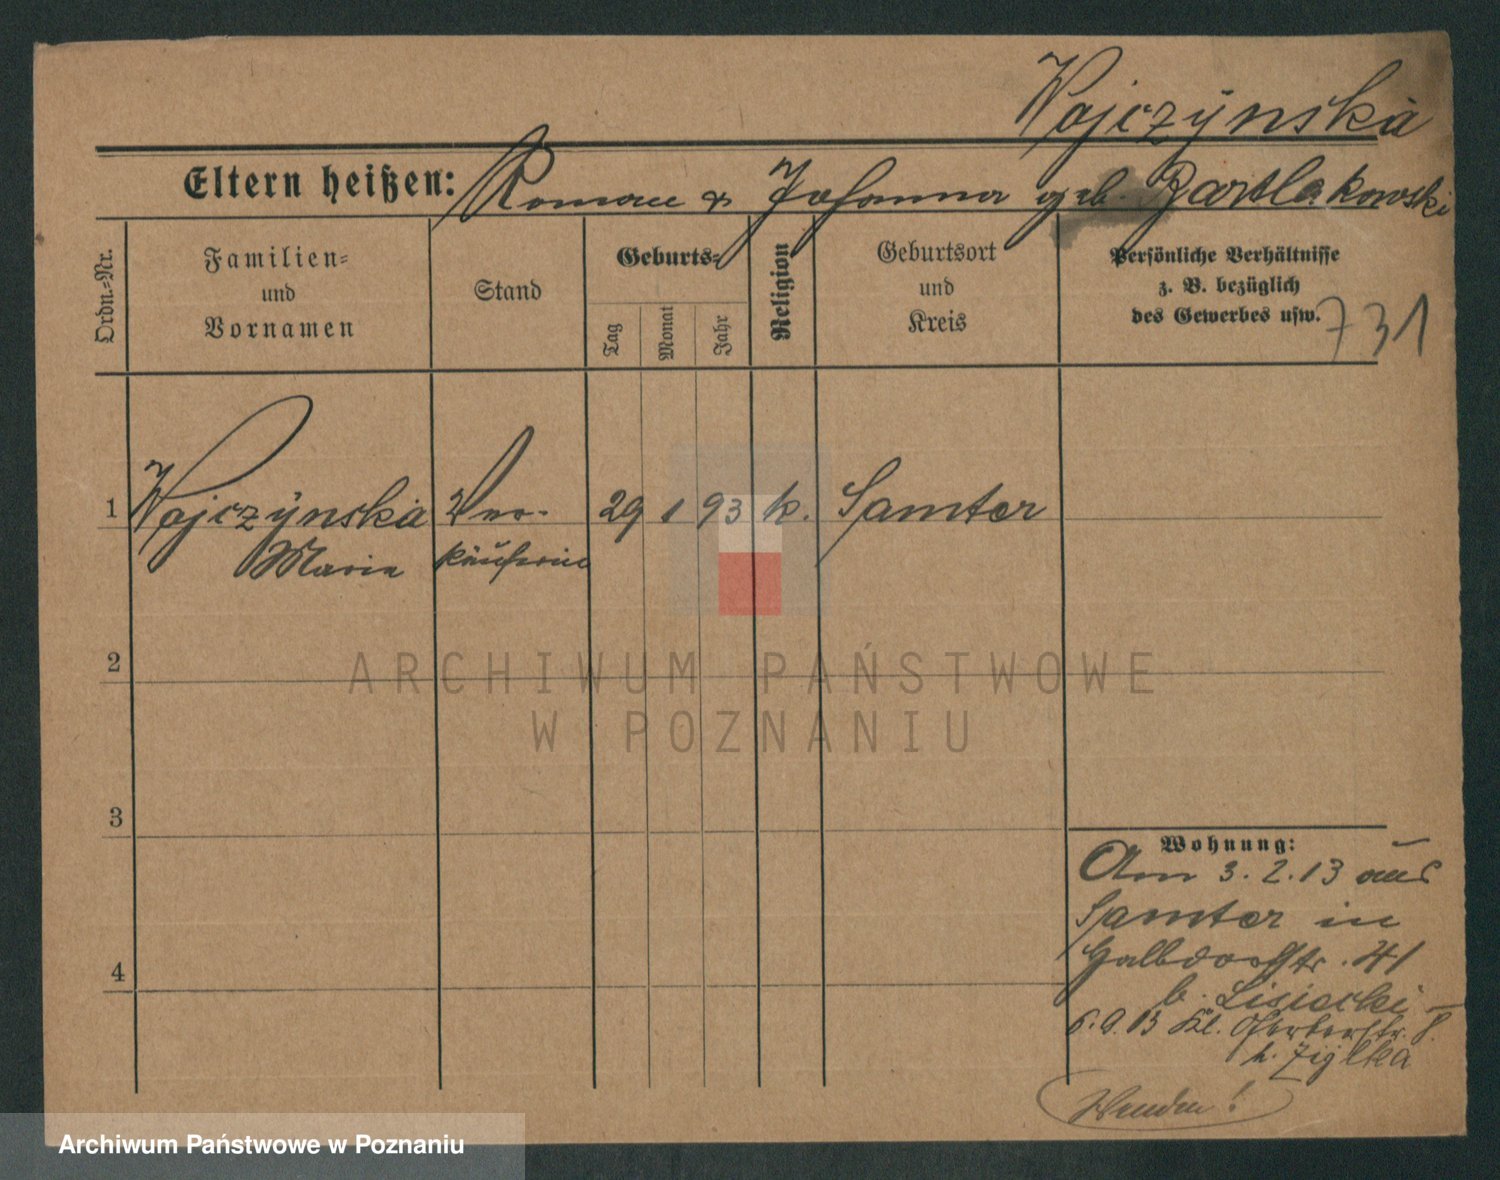 Wojczÿnska
Eltern heißen: Roman & Johanna geb. Bartlakowski
Ordn.-Nr.
Familien-
und
Vornamen
Stand
Geburts-
Tag
Monat
Jahr
Religion
Geburtsort
und
Kreis
Persönliche Verhältnisse
z. B. bezüglich
des Gewerbes usw.
731
1 Wojczÿnska Ver- 29 1 93 k. Samter
Maria käuferin
2
3
4
Wohnung:
Am 3.2.13 aus
Samter in
41
b.
6.9.13 Kl. Gerberstr. 8.
b. Zijlka
Wenden!
ARCHIWUM PAŃSTWOWE
W POZNANIU
Archiwum Państwowe w Poznaniu